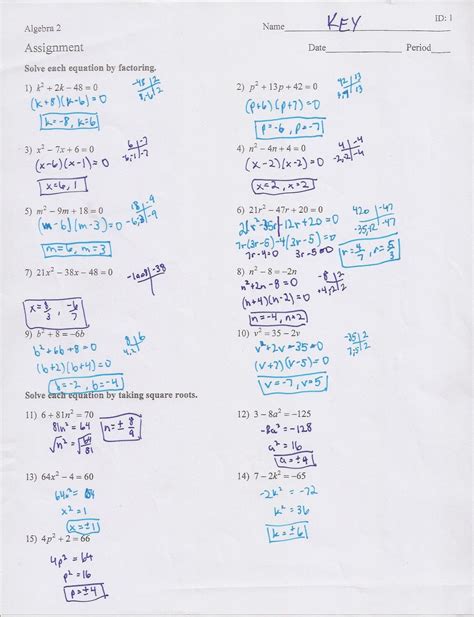 Algebra 2
Name KEY
ID: 1
Assignment
Date Period
Solve each equation by factoring.
1) k² + 2k − 48 = 0
-48 | 2
8,-6 | 2
(k+8)(k-6)=0
k=-8, k=6
2) p² + 13p + 42 = 0
42 | 13
(p+6)(p+7)=0
p=-6, p=-7
3) x² − 7x + 6 = 0
6 | -7
-6,-1 | -7
(x-6)(x-1)=0
x=6, 1
4) n² − 4n + 4 = 0
4 | -4
-2,-2 | -4
(x-2)(x-2)=0
x=2, x=2
5) m² − 9m + 18 = 0
18 | -9
-6,-3 | -9
(m-6)(m-3)=0
m=6, m=3
6) 21r² − 47r + 20 = 0
420 | -47
-35,-12 | -47
21r²-35r-12r+20=0
7r(3r-5)-4(3r-5)=0
7r-4=0 3r-5=0
r=4/7, r=5/3
7) 21x² − 38x − 48 = 0
-1008 | -38
x= 8/3, -6/7
8) n² − 8 = −2n
-8 | 2
+4,-2 | 2
n²+2n-8=0
(n+4)(n-2)=0
n=-4, n=2
9) b² + 8 = −6b
8 | 6
4,2 |
b²+6b+8=0
(b+2)(b+4)=0
b=-2, b=-4
10) v² = 35 − 2v
-35 | 2
7,-5 | 2
v²+2v-35=0
(v+7)(v-5)=0
v=-7, v=5
Solve each equation by taking square roots.
11) 6 + 81n² = 70
81n² = 64
√n² = √64/81
n= ± 8/9
12) 3 − 8a² = −125
-8a² = -128
a² = 16
a = ±4
13) 64x² − 4 = 60
64x² = 64
x² = 1
x = ±1
14) 7 − 2k² = −65
-2k² = -72
k² = 36
k = ±6
15) 4p² + 2 = 66
4p² = 64
p² = 16
p = ±4